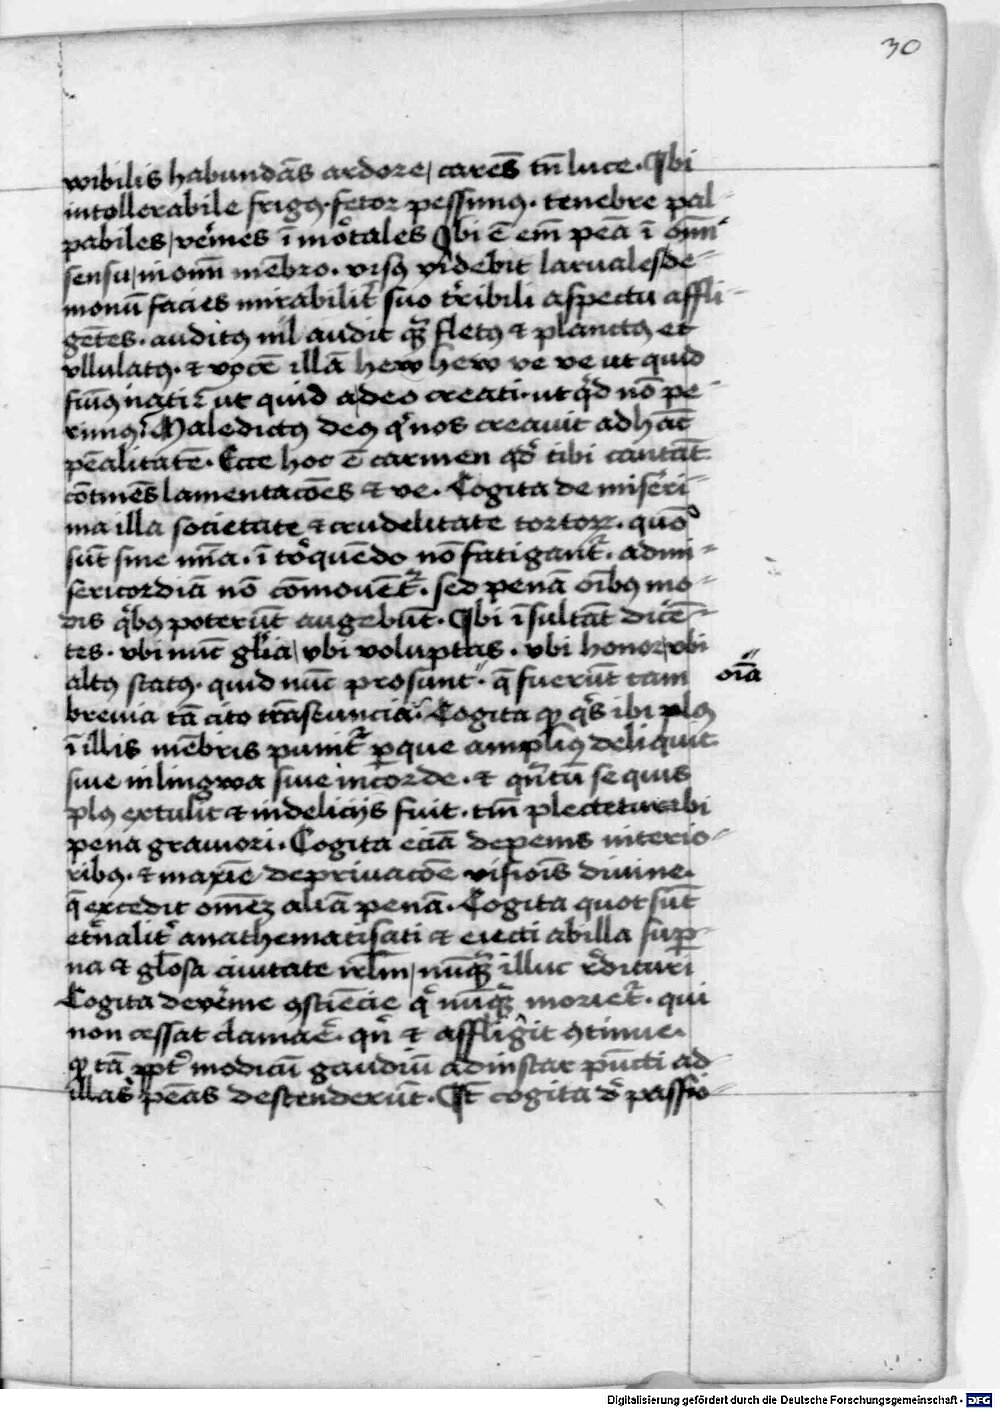 30
wibilis habundās ardore / carēs tn̄ luce. Ibi
intollerabile frigꝰ. fetor pessimꝰ. tenebre pal-
pabiles / v̓mes ī mo̓tales Ibi ē em̄ pēa ī om̄i
sensu / in om̄ mēbro. visꝰ videbit laruales de-
monū facies mirabilit̓ suo t̓ribili aspectu affli-
gētes. auditꝰ nil audit qᷓ fletꝰ et planctꝰ et
vllulatꝰ. et vocē illā hew hew ve ve ut quid
fuimꝰ nati ut quid a deo creati. ut qͥd nō pe-
rimꝰ. Maledictꝰ deꝰ qͥ nos creauit ad hāc
pēalitatē. Ecce hoc ē carmen qd̓ tibi cantāt
cōtinēs lamentacōes et ve. Cogita de miseri-
ma illa societate et crudelitate tortoꝝ. quō
sūt sine mīa. ī to̓quēdo nō fatigant̓. ad mi-
sericordiā nō cōmouēt̓. sed penā oībꝰ mo-
dis qͥbꝰ poterūt augebūt. Ibi īsultāt dicē-
tes. vbi nūc gl̓ia / vbi voluptas. vbi honor / vbi
altꝰ statꝰ. quid nūc prosunt. q̄ fuerūt tam
oīa
breuia tā cito trāseuncia. Cogita ꝙ qͥs ibi plꝰ
ī illis mēbris punit̓ per que ampliꝰ deliquit
siue in lingwa siue in corde. et qn̄tū se quis
plꝰ extulit et in delicijs fuit. tm̄ plectetur ibi
pena grauiori. Cogita eciā de penis interio-
ribꝰ. et maxīe de priuacōe visiōis diuine.
q̄ excedit omēꝫ aliā penā. Cogita quot sūt
et̓nalit̓ anathematisati et eiecti ab illa sup̄-
na et gl̓osa ciuitate irl̓m / nūqᷓ illuc r̓dituri
Cogita de v̓me ꝯsciēcie qͥ nūqᷓ moriet̓. qui
non cessat clamar̄. qn̄ et affligit ꝯtinue.
ꝙ tā ꝓpt̓ modicū gaudiū ad instar pūcti ad
illas pēas descenderūt. It̄ cogita d̓ passio-
Digitalisierung gefördert durch die Deutsche Forschungsgemeinschaft - DFG